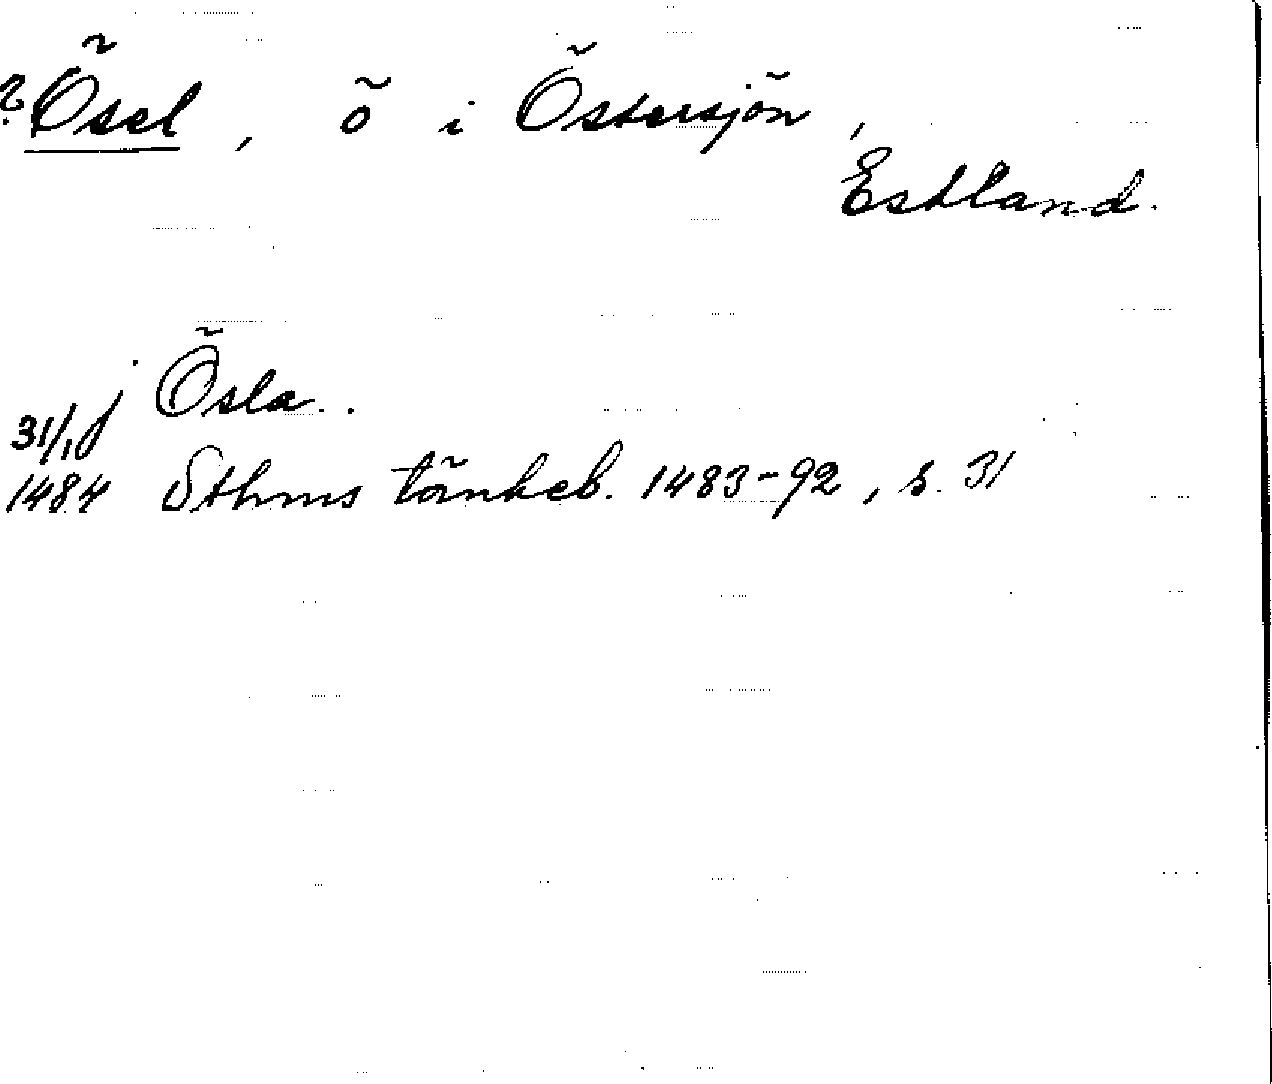 ? Ösel, ö i Östersjön,
Estland.
j Ösla..
31/1
1484 Sthms tänkeb. 1483-92, s. 31